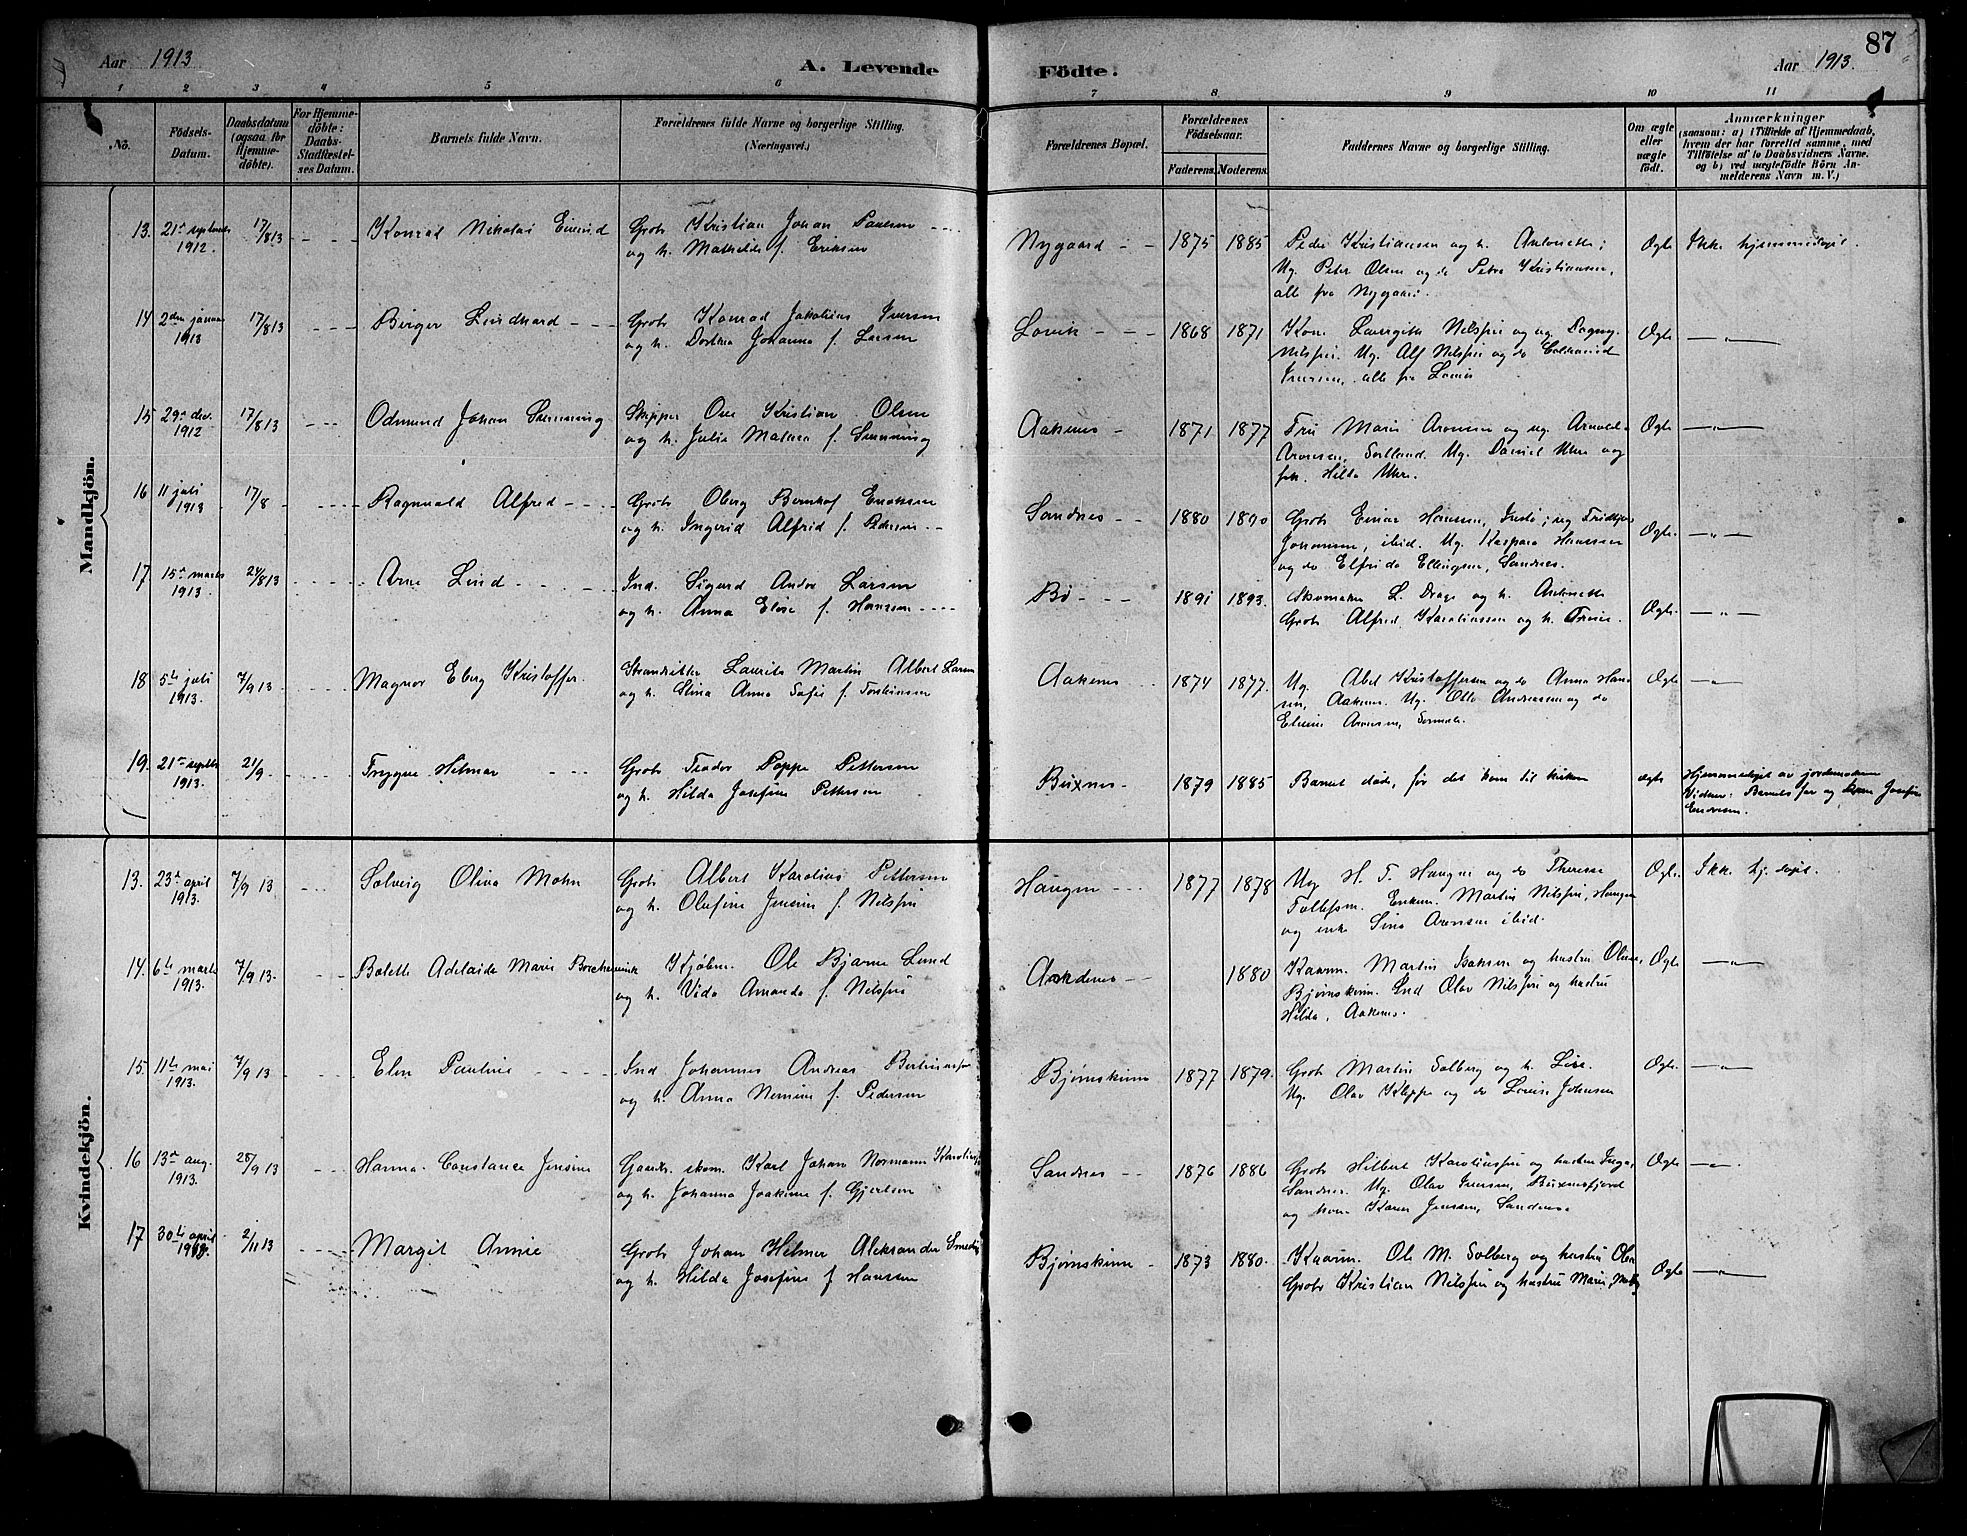 Aar 1913
A. Levende
Födte.
87
Aar 1913.
1 2 3 4 5 6 7 8 9 10 11
No.
Födsels-
Datum.
Daabsdatum
(ogsaa for
Hjemme-
döbte).
For Hjemme-
döbte:
Daabs-
Stadfæstel-
ses Datum.
Barnets fulde Navn.
Forældrenes fulde Navne og borgerlige Stilling.
(Næringsvei.)
Forældrenes Bopæl.
Forældrenes
Födselsaar.
Faderens. Moderens.
Faddernes Navne og borgerlige Stilling.
Om ægte
eller
uægte
födt.
Anmærkninger
(saasom: a) i Tilfælde af Hjemmedaab,
hvem der har forrettet samme, med
Tilföielse af to Daabsvidners Navne,
og b) ved uægtefödte Börn An-
melderens Navn m. V.)
Mandkjön.
13. 21de septembr 1912 17/8 13 Konrad Nikolai Grbr Kristian Johan Paulsen
og h. Mathilde f. Eriksen
Nygaard 1875 1885 Peder Kristiansen og h. Antonette;
Ug. Peter Olsen og do Petra Kristiansen,
alle fra Nygaard.
Ægte Ikke hjemmedøpt.
14 2den januar 1913 17/8 13 Birger Lindhard Grbr Konrad Jakobius Iversen
og h. Johanna f. Larsen
Lovik 1868 1871 Kone Nilssen og ug. Dagny
Nilssen. Ug. Alf Nilssen og do
Iversen, alle fra Lovik
Ægte — " —
15 29de dec. 1912 17/8 13 Odmund Johan Skipper Ove Kristian Olsen
og h. Julia f.
Aakenes 1871 1877 Fru Marie Aronsen og ug. Arnold
Aronsen, Sortland. Ug. Daniel og
frk. Hilda
Ægte — " —
16 11 juli 1913 17/8 Ragnvald Alfred Grbr Oberg Bernhof Enoksen
og h. Ingerid Alfrid f. Pedersen
Sandnes 1880 1890 Grbr Einar Hanssen, ; ug Fridtjof
Johansen, ibid. Ug. Kaspara Hanssen
og do Elfrida Ellingsen, Sandnes.
Ægte. — " —
17 15de marts 1913. 24/8 13 Arne Lind Ind. Sigurd Andor Larsen
og h. Anna Elise f. Hanssen
Bø 1891 1893. Skomaker L. Drage og h. Antonette
Grbr Alfred Karoliussen og h. Trine.
Ægte. — " —
18 5te juli 1913. 7/9 13 Magnor Eberg Kristoffer. Strandsitter Laurits Martin Albert Larsen
og h. Stina Anna Sofie f. Torkinsen
Aakenes 1874 1877. Ug. Abel Kristoffersen og do Anna Han-
sen, Aakenes. Ug. Otto Andreassen og do
Aronsen,
Ægte — " —
19. 21de septbr 1913. 21/9 Trygve Helmar Grbr Teodor Poppe Pettersen
og h. Hilda Josefine Pettersen
Buxnes 1879 1885 Barnet døde, før det kom til kirken ægte Hjemmedøpt av jordemoderen
Vidner: Barnets far og Josefine
Kvindekjön.
13. 23de april 1913. 7/9 13 Solveig Oliva Mohn Grbr Albert Karolius Pettersen
og h. Olufine Jensine f. Nilssen
Haugen 1877 1878 Ug H. T. Haugen og do Therese
Tollefsen. Enkem. Martin Nilssen, Haugen
og enke Sina Aronsen ibid.
Ægte. Ikke hj. døpt.
14. 6te marts 1913. 7/9 13. Bolette Adelaide Marie Kjøbm. Ole Bjarne Lund
og h. Vida Amanda f. Nilssen
Aakenes 1880 Kaarm. Martin Isaksen og hustru
Bjørnskinn. Ind Olav Nilssen og hustru
Hilda, Aakenes.
Ægte — " —
15. 11te mai 1913. 7/9 13 Elen Pauline Ind Johannes Andreas Bertinussen
og h. Anna f. Pedersen
Bjørnskinn 1877 1879. Grbr Martin Solberg og h. Lise.
Ug. Olav Kleppe og do Louise Johnsen
Ægte. — " —
16 13de aug. 1913. 28/9 13 Hanna Constance Jensine Gaardbr. skom. Karl Johan Normann Karoliussen
og h. Johanna Joakime f. Gjertsen
Sandnes 1876 1886 Grbr Hilbert Karoliussen og hustru Inga,
Sandnes. Ug. Olav Iversen, Buxnesfjord
og kone Karen Jensen, Sandnes
Ægte — " —
17 30te april 1913. 2/11 13 Margit Annie Grbr Johan Helmer Aleksander
og h. Hilda Josefine f Hanssen
Bjørnskinn 1873 1880. Kaarm. Ole M. Solberg og hustru
Grbr Kristian Nilssen og hustru Marie,
Ægte — " —